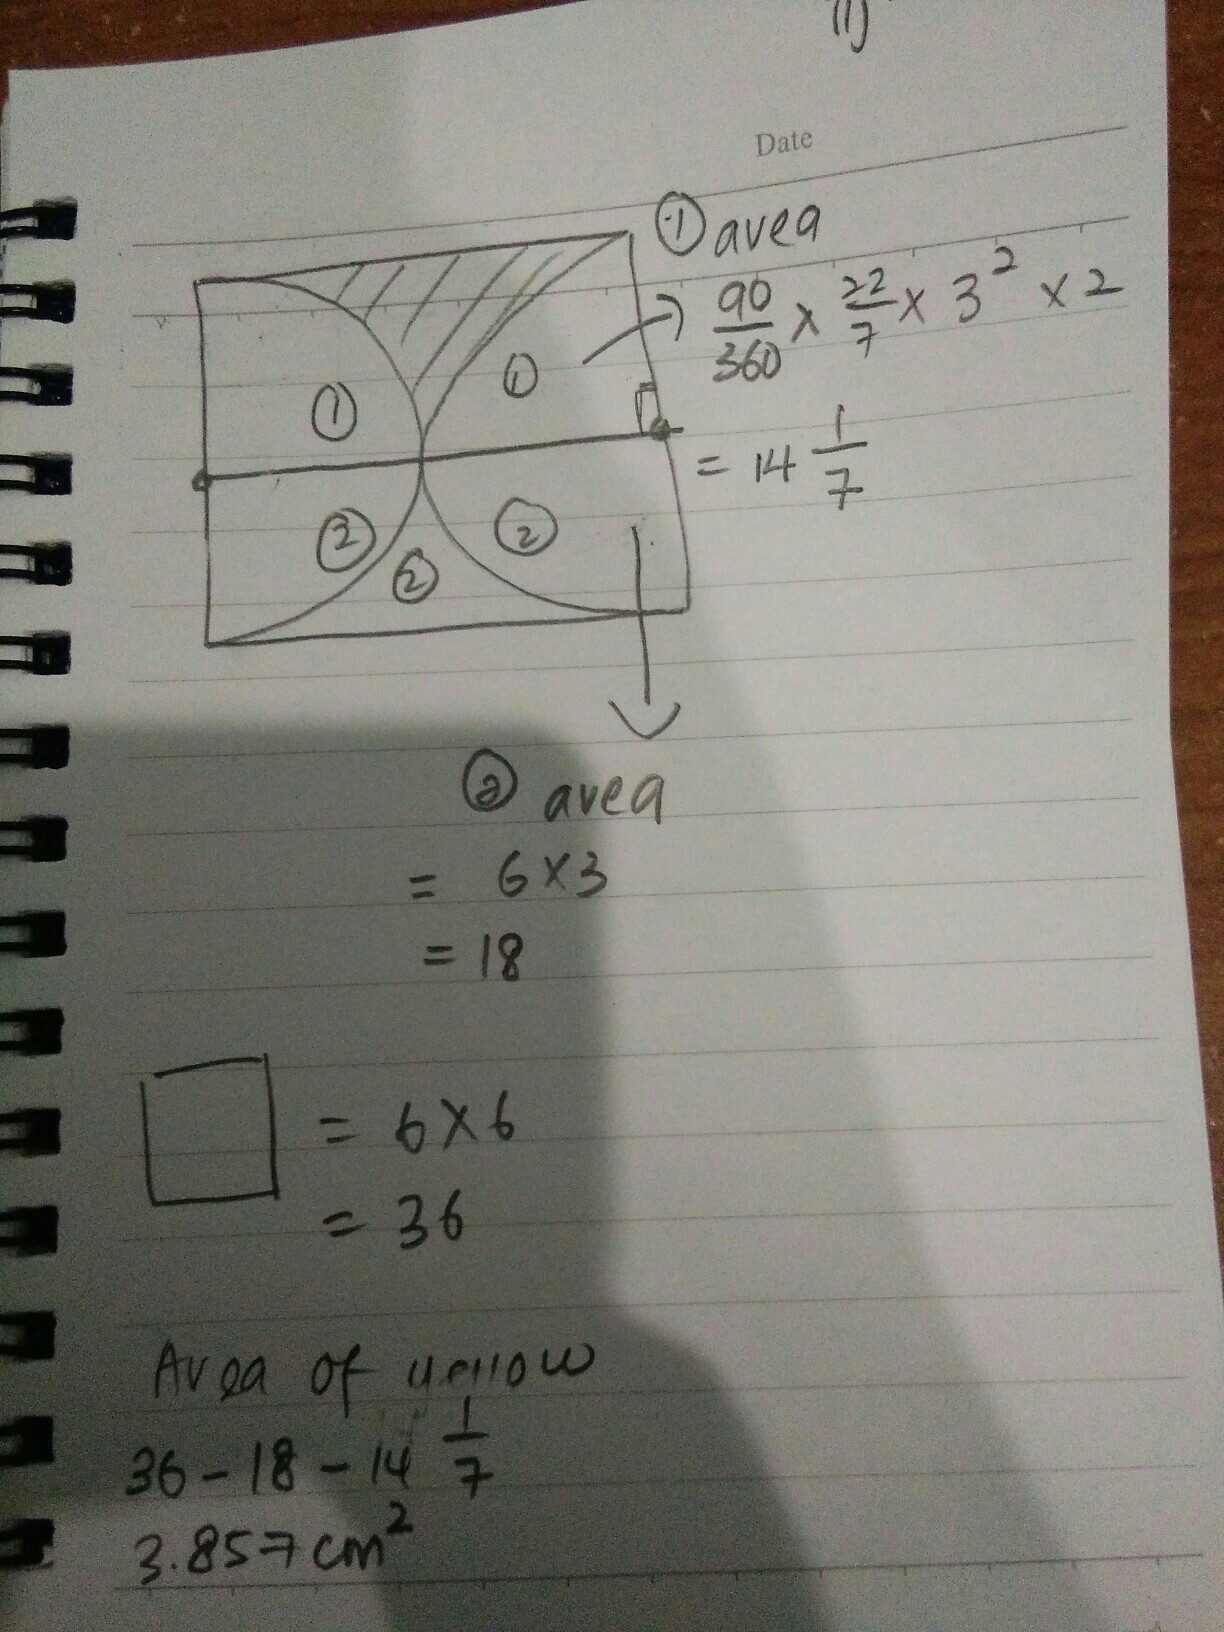 11)
Date
① area
90/360 × 22/7 × 3² × 2
= 14 1/7
① ①
② ② ②
② area
= 6×3
= 18
= 6×6
= 36
Area of yellow
36 - 18 - 14 1/7
3.857 cm²